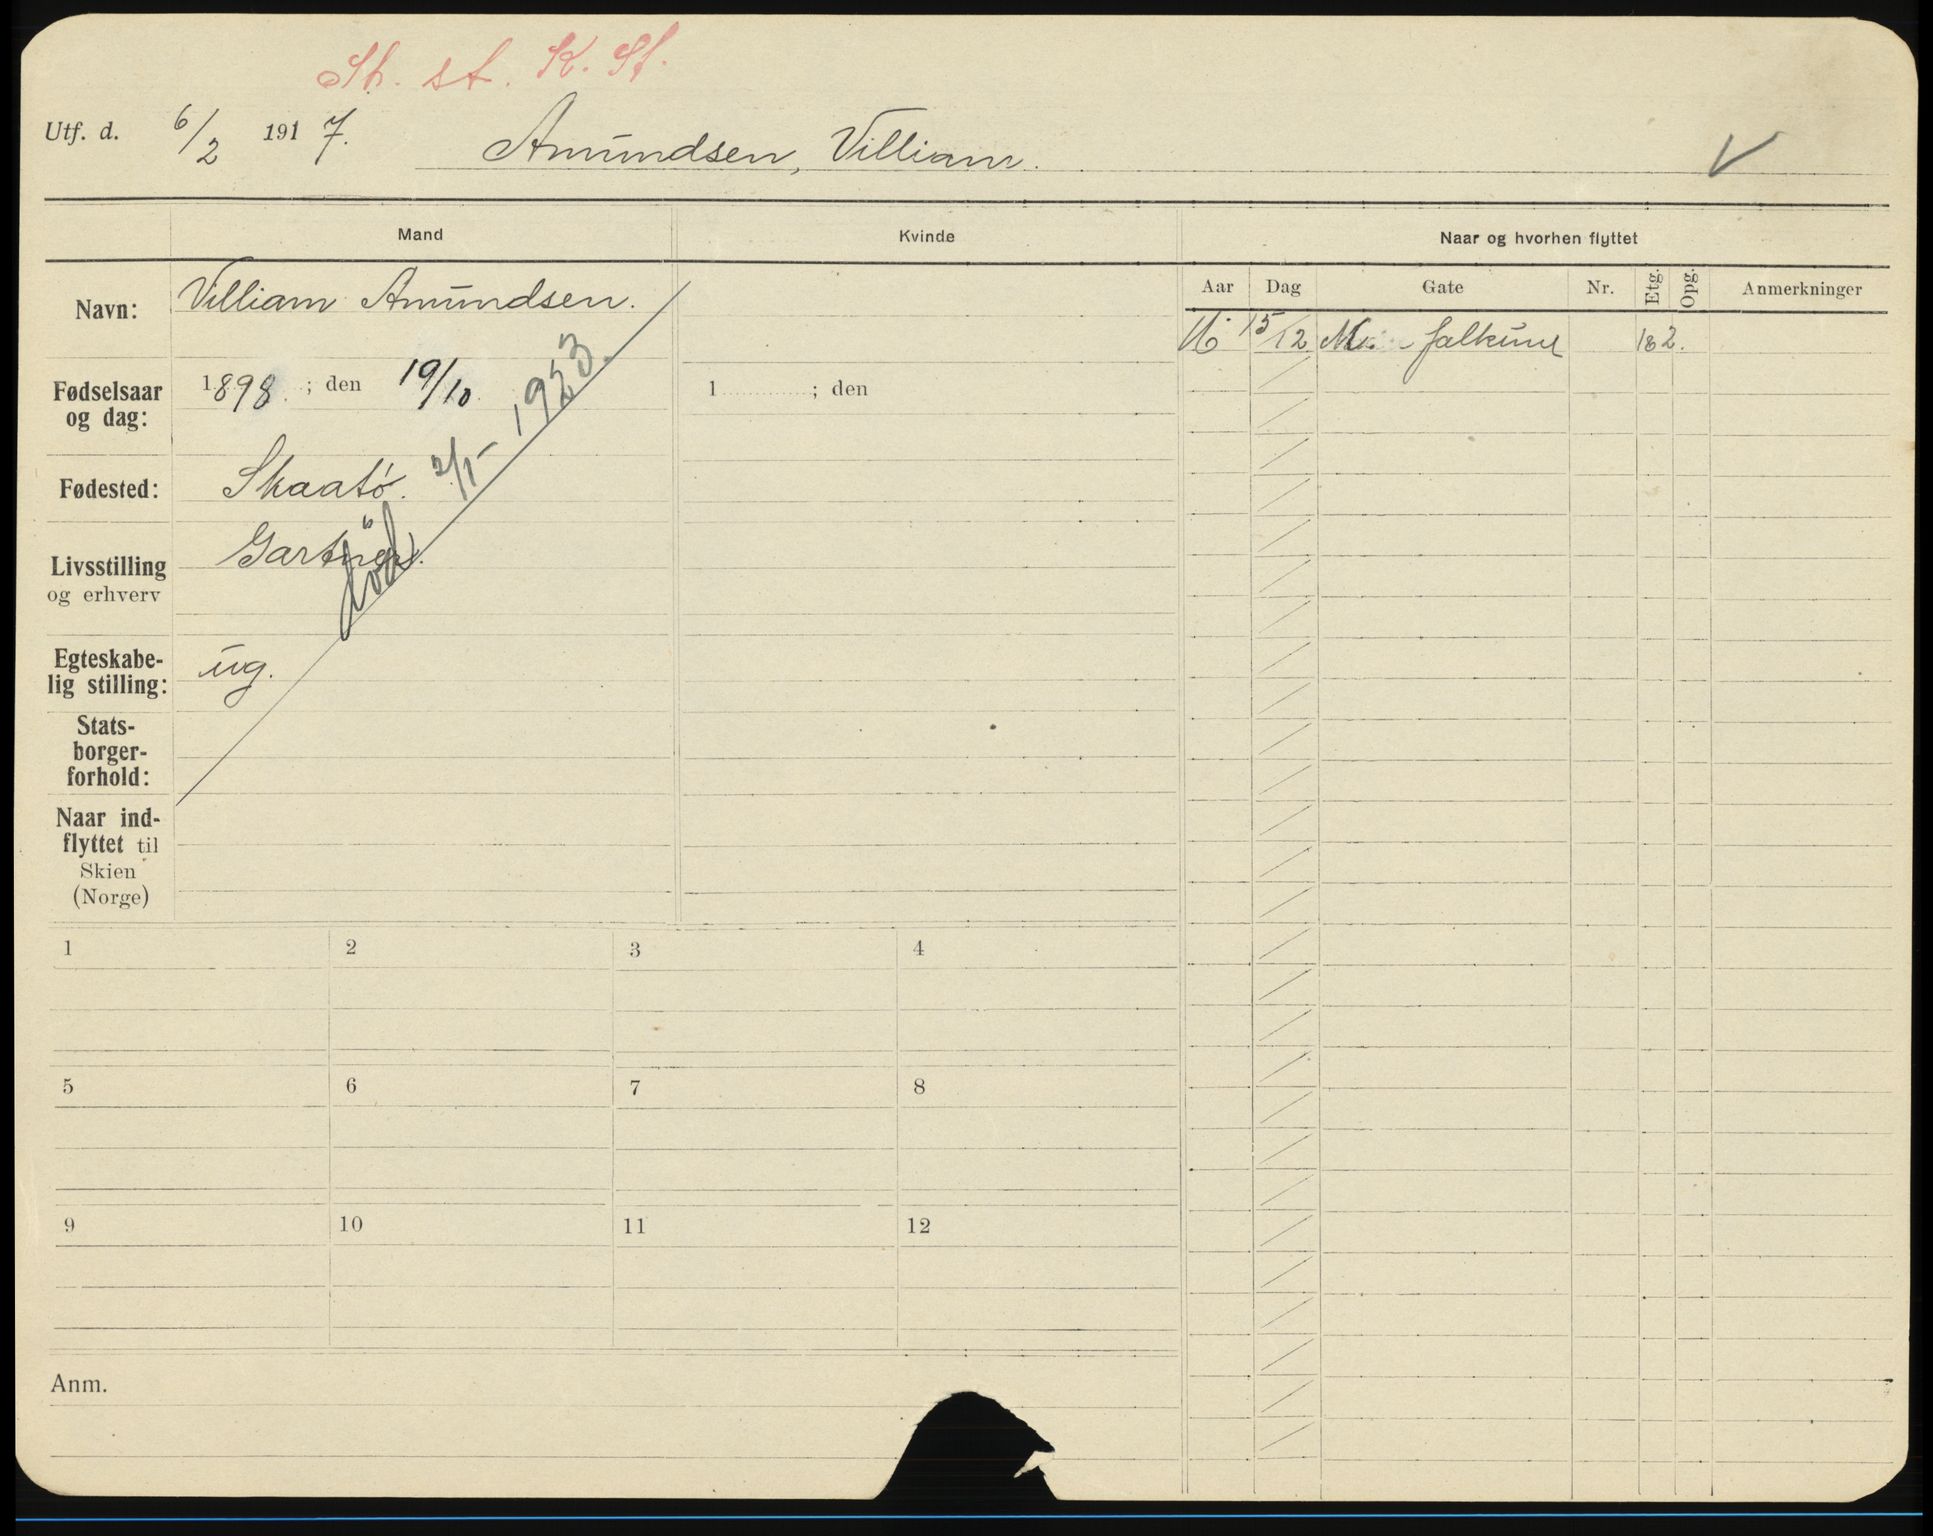 Sk. st. K. St.
Utf. d. 6/2 1917. Amundsen, Villiam. V
Mand Kvinde Naar og hvorhen flyttet
Aar Dag Gate Nr. Etg. Opg. Anmerkninger
Navn: Villiam Amundsen.
15/12 falkum 182.
Fødselsaar og dag: 1898.; den 19/10. 1 ; den
Fødested: Skaatö.
Livsstilling og erhverv Gartner.
död 2/1 - 1923.
Egteskabe-
lig stilling: ug.
Stats-
borger-
forhold:
Naar ind-
flyttet til
Skien
(Norge)
1 2 3 4
5 6 7 8
9 10 11 12
Anm.